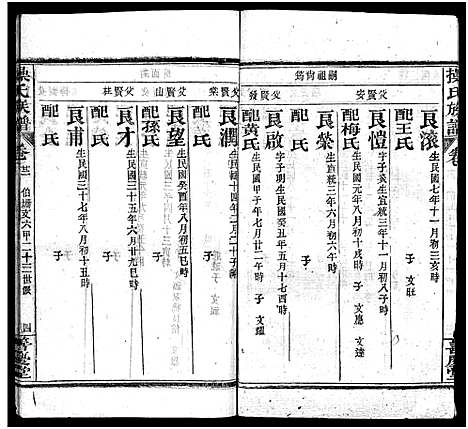 操氏族譜
卷
善慶堂
父賢安
嗣祖尚筠
父賢發
良滾 生民國七年十一月初三亥時
配王氏 子 文旺
良愷 字子炎生宣統三年十一月初八子時
配梅氏 生民國元年八月初十戌時 子 文應 文達
良榮 生宣統三年六月初六八時
配 氏 子
良啟 字子明生民國癸丑年五月十七酉時
配黃氏 生民國甲子年七月廿二午時 子 文耀
父賢棠
父賢山
父賢柱
良潤 生民國十四年二月二十子時
配 氏 子
良望 生民國癸酉年八月初五巳時
配孫氏 子
良才 生民國三十五年六月廿九巳時
配 氏 子
良甫 生民國三十七年八月初十五時
配 氏 子
操氏族譜
卷十三 伯場文六甲二十三世 四
善慶堂